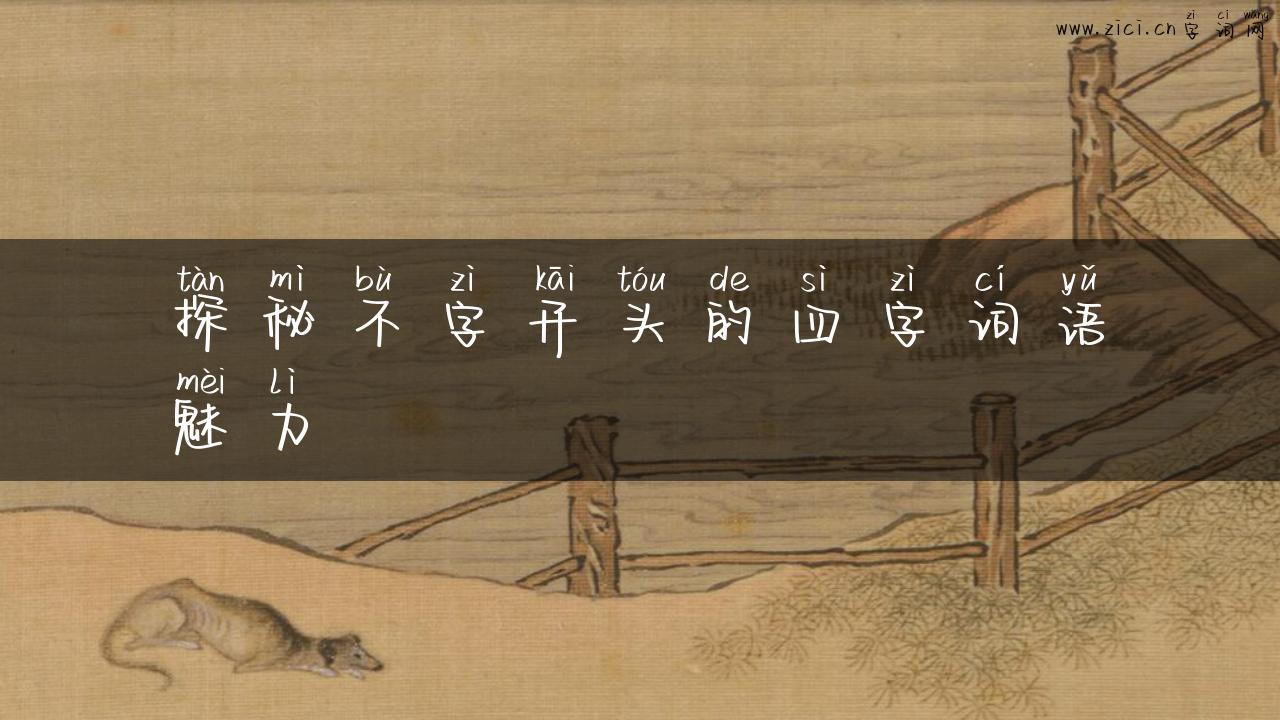 zì cí wǎng
www.zici.cn字词网
tàn mì bù zì kāi tóu de sì zì cí yǔ
探秘不字开头的四字词语
mèi lì
魅力